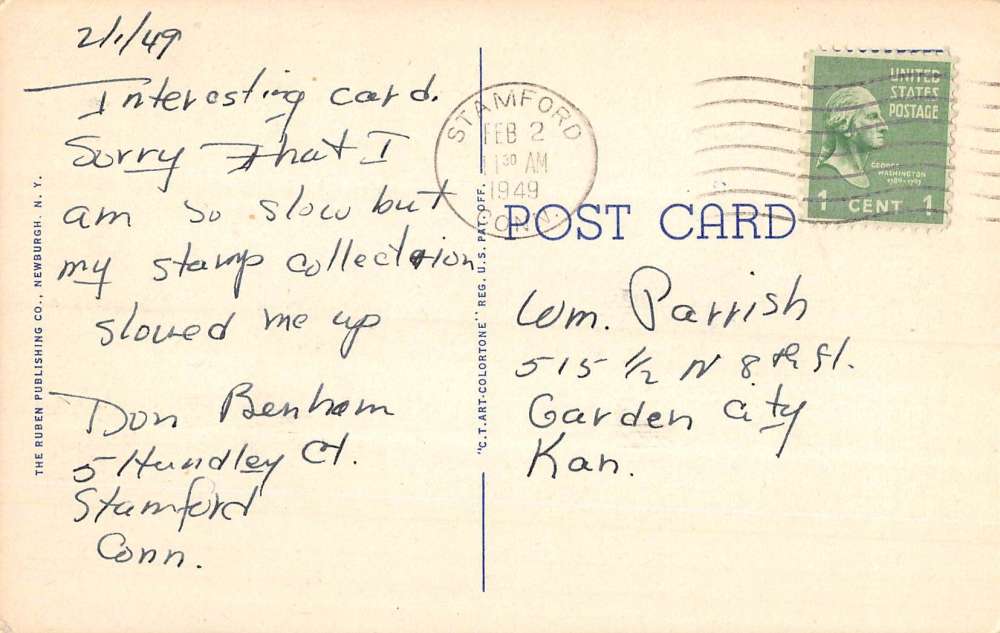 2/1/49
Interesting card.
Sorry that I
am so slow but
my stamp collection
slowed me up
Don Benham
5 Hundley Ct.
Stamford
Conn.
THE RUBEN PUBLISHING CO., NEWBURGH, N. Y.
"C.T. ART-COLORTONE" REG. U.S. PAT. OFF.
STAMFORD
FEB 2
11 30 AM
1949
CONN.
UNITED
STATES
POSTAGE
GEORGE
WASHINGTON
1789-1797
1 CENT 1
POST CARD
Wm. Parrish
515 1/2 N 8th St.
Garden City
Kan.